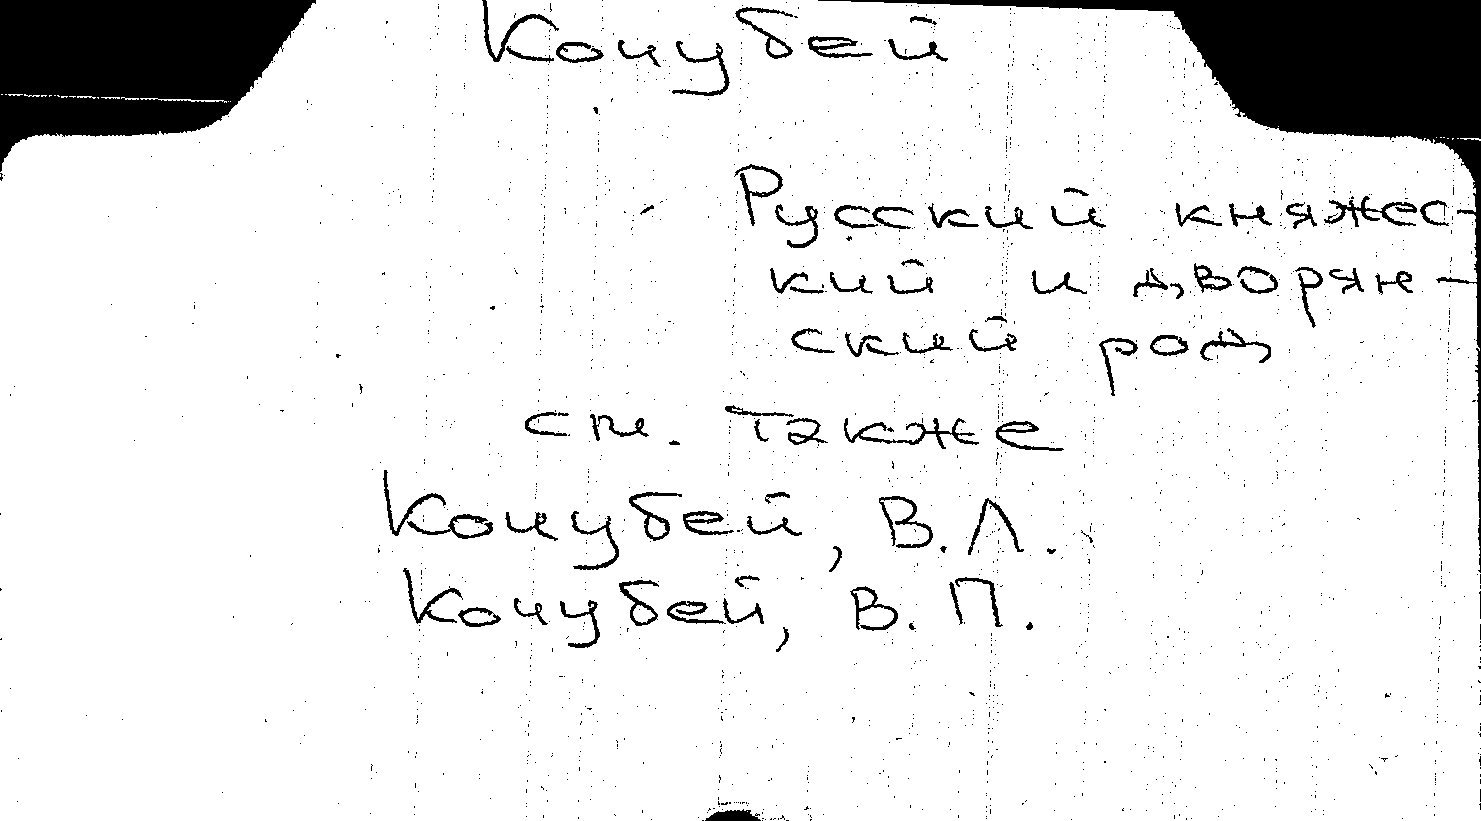 Кочубей
Русский княжес-
кий и дворян-
ский род
см. также
Кочубей, В.Л.
Кочубей, В.П.